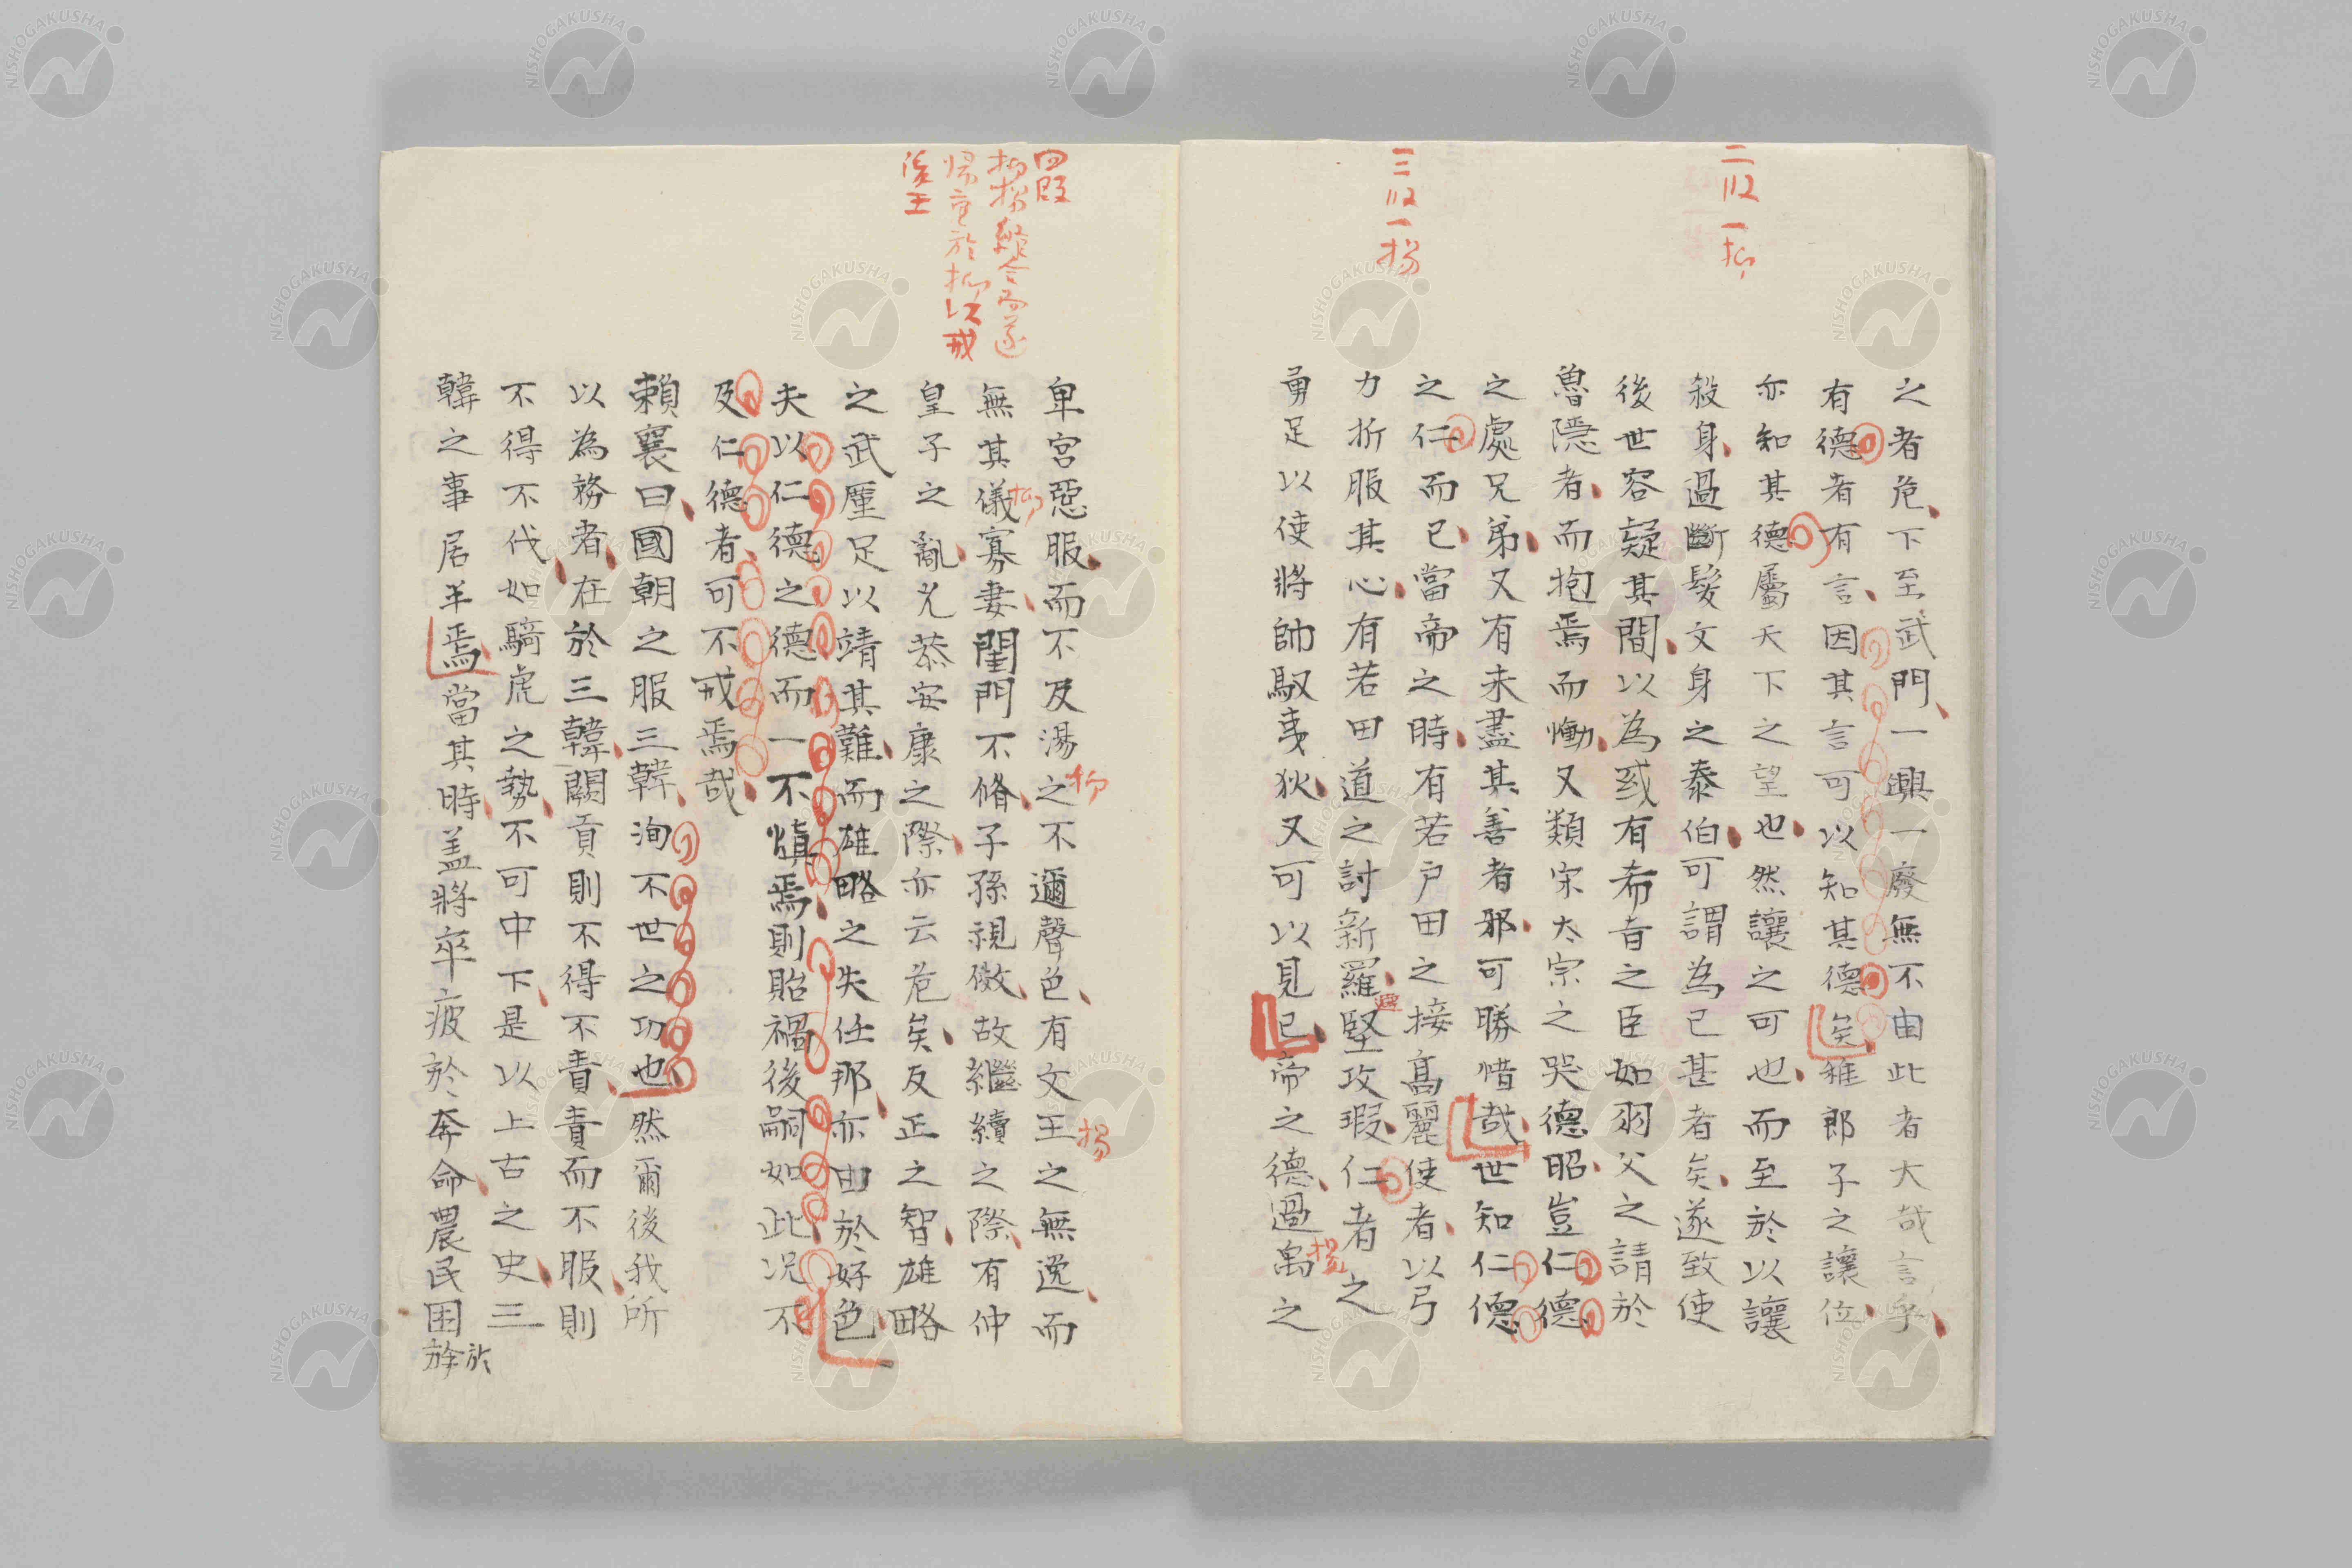 二段一抑
三段一揚
之者危下至武門一興一廢無不由此者大哉言乎
有德者有言因其言可以知其德矣稚郎子之讓位
亦知其德屬天下之望也然讓之可也而至於以讓
殺身過斷髮文身之泰伯可謂為已甚者矣遂致使
後世容疑其間以為或有希旨之臣如羽父之請於
魯隱者而抱焉而慟又類宋太宗之哭德昭豈仁德
之處兄弟又有未盡其善者邪可勝惜哉世知仁德
之仁而已當帝之時有若戶田之接高麗使者以弓
力折服其心有若田道之討新羅避堅攻瑕仁者之
勇足以使將帥馭夷狄又可以見已帝之德過禹之
揚
四段
抑揚縱令而遂
歸重於抑以戒
後王
卑宮惡服而不及湯之不邇聲色有文王之無逸而
抑
揚
無其儀寡妻閨門不脩子孫視傚故繼續之際有仲
抑
皇子之亂允恭安康之際亦云危矣反正之智雄略
之武廑足以靖其難而雄略之失任那亦由於好色
夫以仁德之德而一不慎焉則貽禍後嗣如此況不
及仁德者可不戒焉哉
賴襄曰國朝之服三韓洵不世之功也然爾後我所
以為務者在於三韓闕貢則不得不責責而不服則
不得不代如騎虎之勢不可中下是以上古之史三
韓之事居半焉當其時蓋將卒疲於奔命農民困於